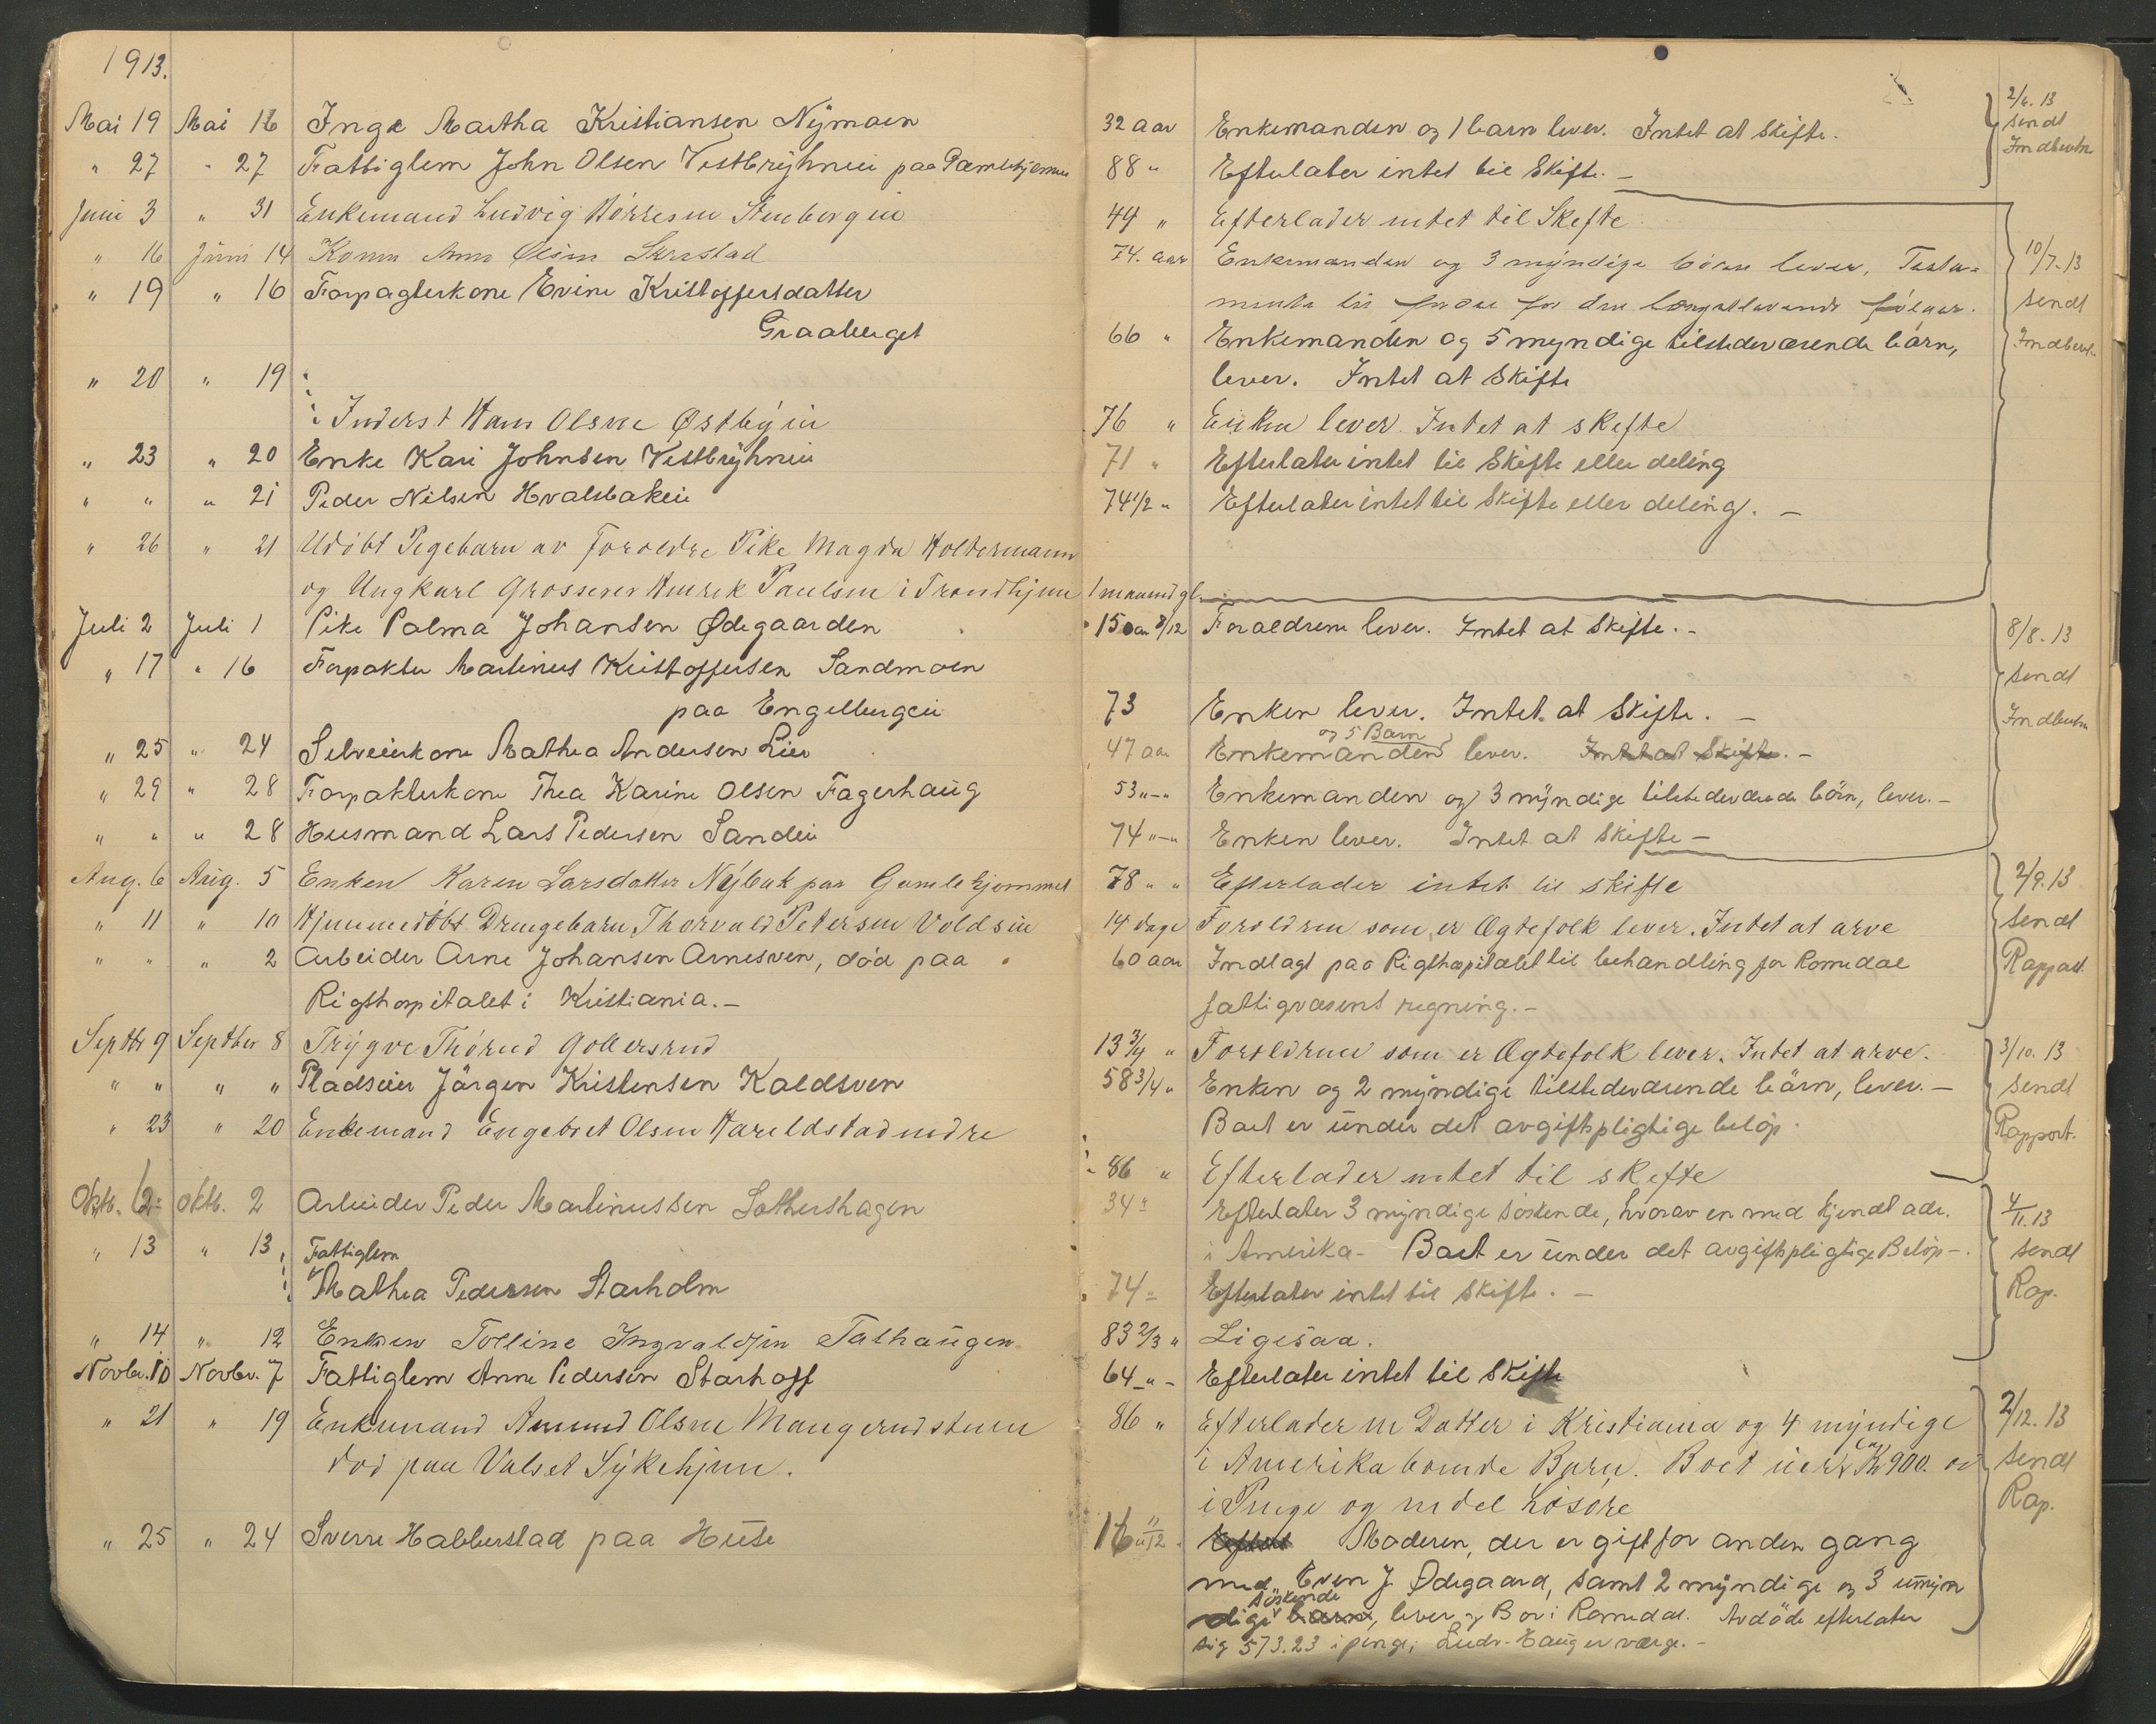 1913.
Mai 19 Mai 16 Inga Martha Kristiansen Nymoen
" 27 " 27 Fattiglem John Olsen Vestbryhnei paa Gamlehjemmet
Juni 3 " 31 Enkemand Ludvig Stenbergei
" 16 Juni 14 Olsen
" 19 " 16 Forpagterkone Evine Kristoffersdatter
Graaberget
" 20 " 19
Inderst Hans Olsen Østbyei
" 23 " 20 Enke Kari Johnsen Vestbryhnei
" " " 21 Peder Nilsen Hvalsbakei
" 26 " 21 Udöbt Pigebarn av Foreldre Pike Magda Holtermann
og Ungkarl Grosserer Henrik Paulsen i Trondhjem
Juli 2 Juli 1 Pike Palma Johansen Ødegaarden
" 17 " 16 Forpakter Martinius Kristoffersen Sandmoen
paa Engelbergei
" 25 " 24 Selveierkone Mathea Andersen Lier
" 29 " 28 Forpakterkone Thea Karine Olsen Fagerhaug
" " " 28 Husmand Lars Pedersen Sandei
Aug. 6 Aug. 5 Enken Karen Larsdatter Nybak paa Gamlehjemmet
" 11 " 10 Hjemmedöbt Drengebarn Thorvald Petersen Voldsei
" " " 2 Arbeider Arne Johansen Arnesven, död paa
Rigshospitalet i Kristiania.-
Septbr 9 Septber 8 Trygve Thorud Gollersrud
" " " " Pladseier Jörgen Kristensen Koldsven
" 23 " 20 Enkemand Engebret Olsen Hareldstad nedre
Oktb. 6 Oktb. 2 Arbeider Peder Martinussen Lothershagen
" 13 " 13 Fattiglem
Mathea Pedersen Starholm
" 14 " 12 Enken Tolline Ingvaldsen
Novbr. 10 Novbr. 7 Fattiglem Anne Pedersen Starhoff
" 21 " 19 Enkemand Amund Olsen Mangerudstuen
död paa Valset Sykehjem.
" 25 " 24 Sverre Habberstad paa Huse
32 aar Enkemanden og 1 barn lever. Intet at skifte.
88 " Efterlater intet til Skifte.-
44 " Efterlader intet til Skefte
74. aar Enkemanden og 3 myndige börn lever, Testa-
mente til for den længstlevende fölger.
66 " Enkemanden og 5 myndige tilstedeværende börn,
lever. Intet at skifte
76 " Enken lever. Intet at skefte
71 " Efterlater intet til Skifte eller deling
74 1/2 " Efterlater intet til Skifte eller deling. -
1 maaned gl.
15 aar 8/12 Foraeldrene lever. Intet at skifte.-
73 Enken lever. Intet at skifte. -
og 5 Barn
47 aar Enkemanden lever. Intet at skifte.-
53 "-" Enkemanden og 3 myndige tilstedeværende börn, lever.-
74 "-" Enken lever. Intet at skifte-
78 " " Efterlader intet til skifte
14 dage Foreldren som er Ægtefolk lever. Intet at arve
60 aar Indlagt paa Rigshospitalet til behandling for Romedal
fattigvæsens regning.-
13 3/4 " Foreldrene som er Ægtefolk lever. Intet at arve.
58 3/4 " Enken og 2 myndige tilstedeværende börn, lever.-
Boet er under det avgiftspligtige belöp.
86 " Efterlader intet til skefte
34 " Efterlater 3 myndige söskende, hvorav en med kjendt adr.
i Amerika- Boet er under det avgiftspligtige Belöp-.
74 " Efterlater intet til skifte. -
83 2/3 " Ligesaa.
64 "- Efterlater intet til Skifte
86 " Efterlader en Datter i Kristiania og 4 myndige
i Amerika boende Barn. Boet ca Kr 900.
i Penge og endel Lösöre
16 11/12 Efterl Moderen, der er gift for anden gang
med Even J. Ødegaard, samt 2 myndige og 3 umyn
söskende
dige barn, lever og Bor i Romedal. Avdöde efterlater
sig 573.23 i penge; Ludv. Haug er værge.-
2/6. 13
sendt
Indberetn.
10/7-13
sendt
Indberet.
8/8-13
sendt
Indberetn
2/9.13
sendt
Rapport.
3/10. 13
sendt
Rapport.
4/11.13
sendt
Rap.
2/12. 13
sendt
Rap.